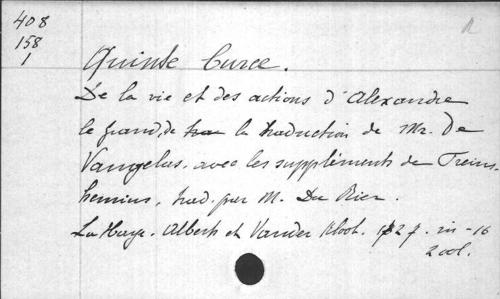 408
158
1
Quinte Curce.
De la vie et des actions d'Alexandre
le grand, de la traduction de Mr. De
Vangelas. avec les suppléments de Freins-
hemius, trad. par M. Du Rier.
La Haye. Alberts et Vander Kloot. 1727. in-16
2 vol.